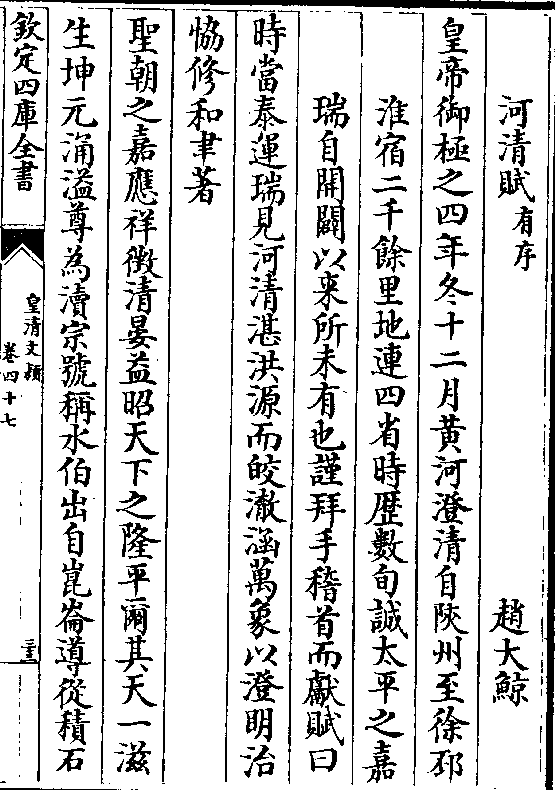 河清賦有序
趙大鯨
皇帝御極之四年冬十二月黃河澄清自陝州至徐邳
淮宿二千餘里地連四省時歴數旬誠太平之嘉
瑞自開闢以來所未有也謹拜手稽首而獻賦曰
時當泰運瑞見河清湛洪源而皎澈涵萬象以澄明治
恊修和聿著
聖朝之嘉應祥徴清晏益昭天下之隆平爾其天一滋
生坤元涌溢尊為瀆宗號稱水伯出自崑崙導從積石
欽定四庫全書
皇清文頴
卷四十七
三